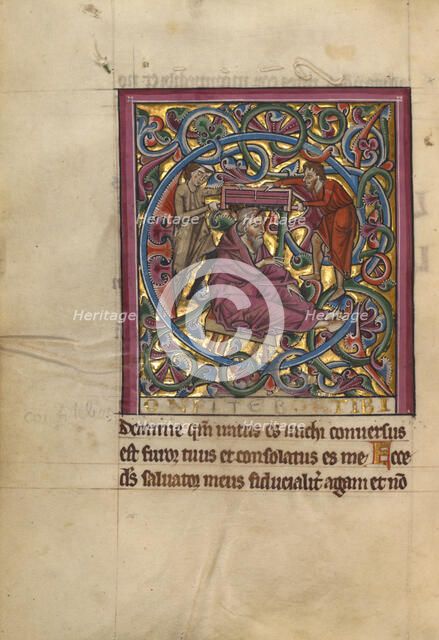 ONFITEBOR TIBI
domine qm iratus es michi conversus
est furor tuus et consolatus es me Ecce
ds salvator meus fiducialit agam et nō
Heritage
Heritage
Heritage
Heritage
Heritage
Heritage
Heritage